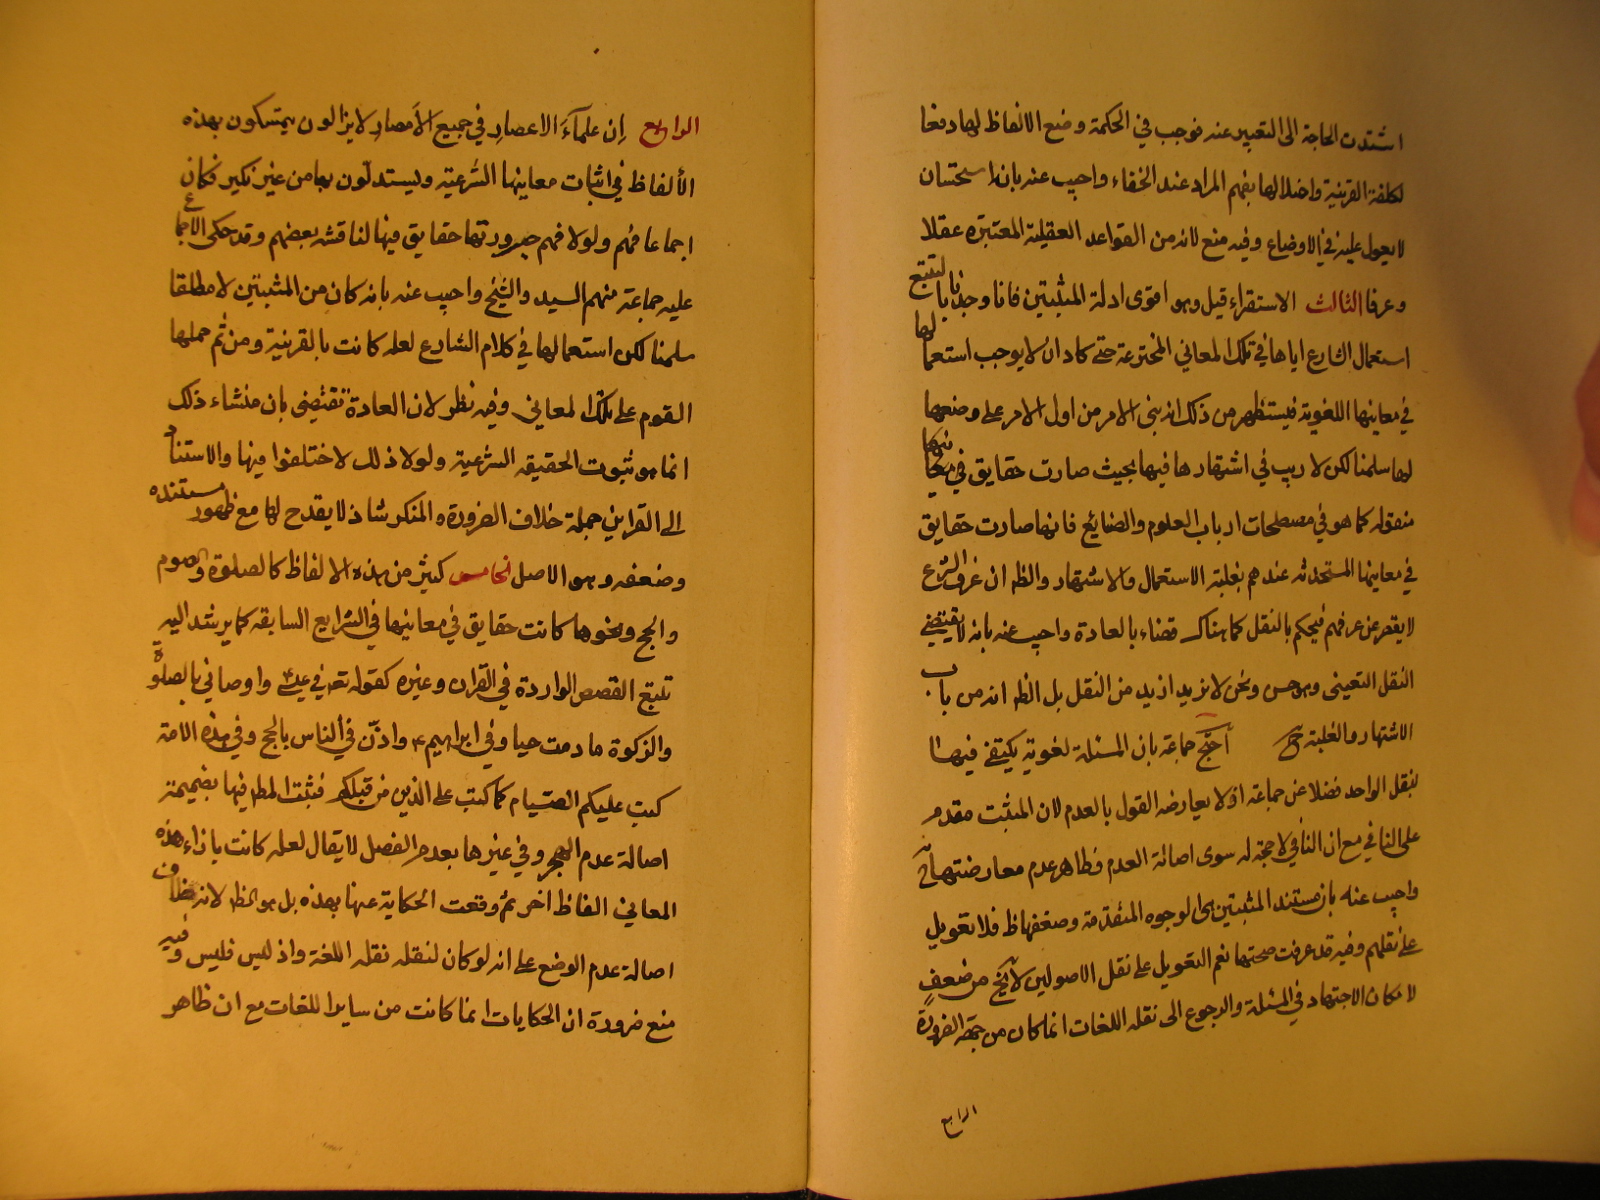 اشتدت الحاجة الى التعبير عنه فوجب في الحكمة وضع الالفاظ لها دفعا
لكلفة القرينة واخلالها بفهم المراد عند الخفاء واجيب عنه بان استحسان
لا يعول عليه في الاوضاع وفيه منع لانه من القواعد العقلية المعتبرة عقلا
وعرفا الثالث الاستقراء قيل وهو اقوى ادلة المثبتين فانا وجدنا بالتتبع
استعمال الشارع اياها في تلك المعاني المخترعة حتى كاد ان لا يوجب استعمالها
في معانيها اللغوية فيستظهر من ذلك انه بنى الامر من اول الامر على وضعها
لها سلمنا لكن لا ريب في اشتهارها فيها بحيث صارت حقايق في معانيها
منقوله كما هو في مصطلحات ارباب العلوم والصنايع فانها صارت حقايق
في معانيها المستحدثه عندهم بغلبة الاستعمال والاشتهار والظ ان عرف الشرع
لا يقصر عن عرفهم فيحكم بالنقل كما هناك قضاء بالعادة واجيب عنه بانه لا يقتضي
النقل التعيني وهو حسن ونحن لا نريد ازيد من النقل بل الظ انه من باب
الاشتهار والغلبة احتج جماعة بان المسئلة لغوية يكتفى فيها
بنقل الواحد فضلا عن جماعة اذ لا يعارضه القول بالعدم لان المثبت مقدم
على النافي مع ان النافي لا حجة له سوى اصالة العدم فظاهر عدم معارضتها
واجيب عنه بان مستند المثبتين هى الوجوه المتقدمة وضعفها ظ فلا تعويل
على نقلهم وفيه قد عرفت صحتها نعم التعويل على نقل الاصوليين لا يخ من ضعف
لامكان الاجتهاد في المسئلة والرجوع الى نقلة اللغات انما كان من جهة الضرورة
الرابع
الرابع ان علماء الاعصار في جميع الامصار لا يزالون يتمسكون بهذه
الألفاظ في اثبات معانيها الشرعية ويستدلون بها من غير نكير فكان
اجماعا منهم ولولا فهم صيرورتها حقايق فيها لناقشه بعضهم وقد حكى الاجماع
عليه جماعة منهم السيد والشيخ واجيب عنه بانه كان من المثبتين لا مطلقا
سلمنا لكن استعمالها في كلام الشارع لعله كانت بالقرينة ومن ثم حملها
القوم على تلك المعاني وفيه نظر لان العادة تقتضي بان منشاء ذلك
انما هو ثبوت الحقيقه الشرعية ولولا ذلك لاختلفوا فيها والاستناد
الى القراين جملة خلاف الضرورة والمنكر شاذ لا يقدح لها مع ظهور مستنده
وضعفه وهو الاصل الخامس كثير من هذه الالفاظ كالصلوة والصوم
والحج ونحوها كانت حقايق في معانيها في الشرايع السابقه كما يرشد اليه
تتبع القصص الواردة في القران وغيره كقوله تعه في عيسى واوصاني بالصلوة
والزكوة ما دمت حيا وفي ابراهيم واذن في الناس بالحج وفي هذه الامة
كتب عليكم الصيام كما كتب على الذين من قبلكم فثبت المط فيها بضميمة
اصالة عدم الهجر وفي غيرها بعدم الفصل لا يقال لعله كانت بازاء هذه
المعاني الفاظ اخر ثم وقعت الحكاية عنها بهذه بل هو الظ لانه خلاف
اصالة عدم الوضع على انه لو كان لنقله نقلة اللغة واذ ليس فليس وفيه
منع ضرورة ان الحكايات انما كانت من ساير اللغات مع ان ظاهر